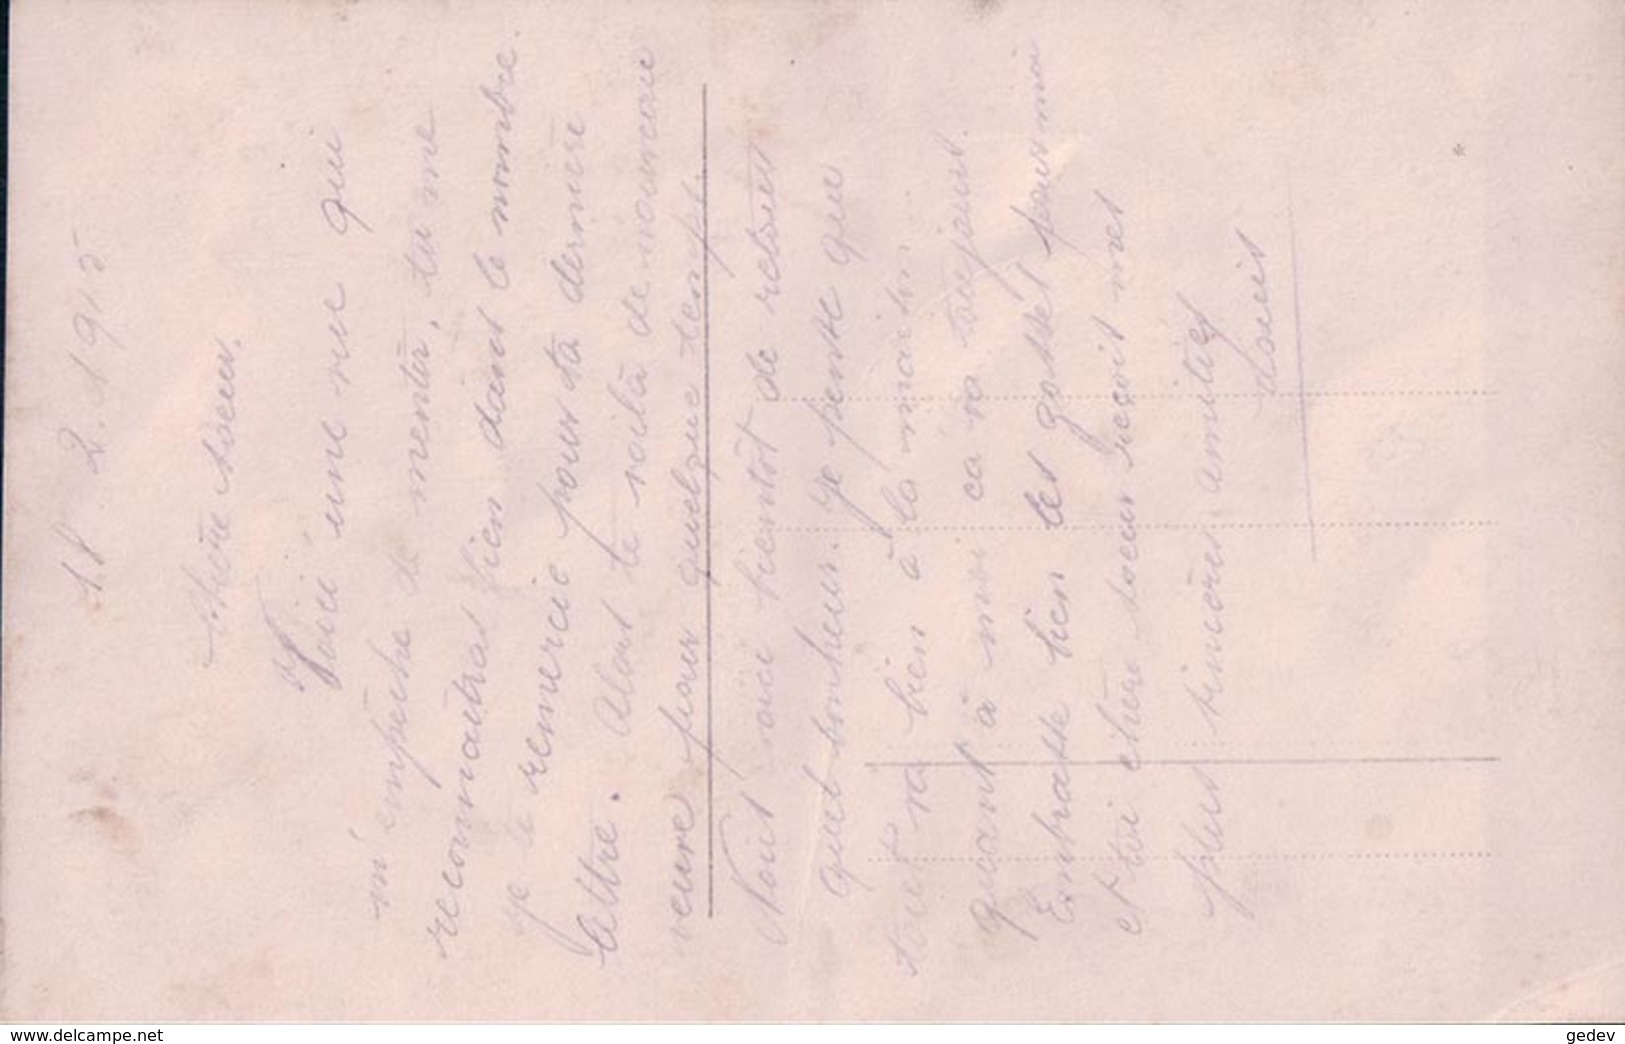 18. 2. 1915
Chère soeur.
Voici une vue qui
m'empêche de mentir, tu me
reconnaitras bien dans le nombre.
Je te remercie pour ta dernière
lettre. Alors te voilà de nouveau
veuve pour quelque temps.
Nous aussi bientôt de retour
quel bonheur. Je pense que
tout va bien à la maison.
quant à moi ca va toujours.
Embrasse bien les gosses pour moi
et toi chère soeur reçoit mes
plus sincères amitiés
Louis
www.delcampe.net
gedev